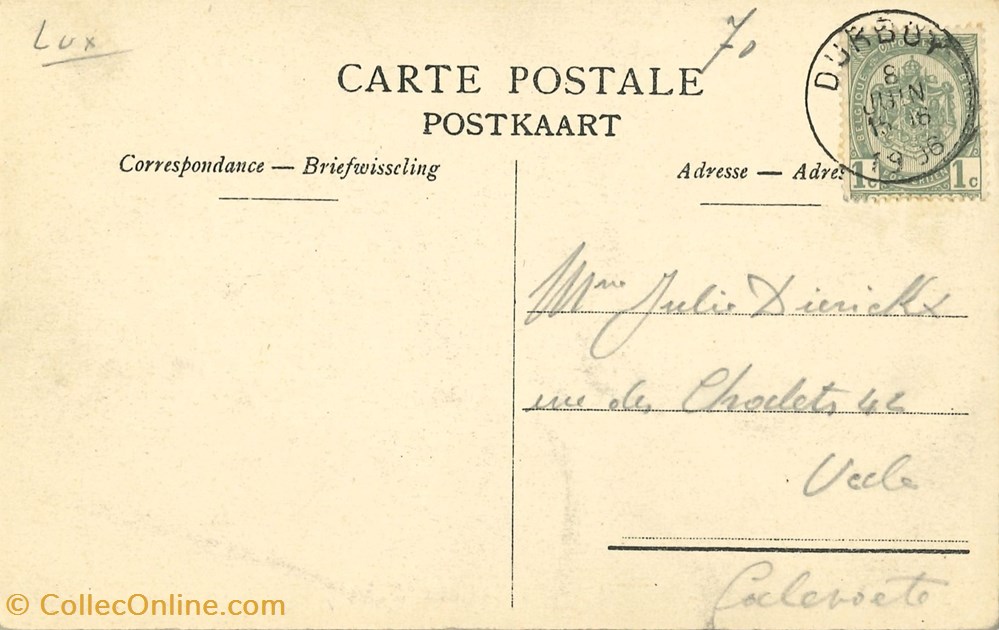 Lux
70
CARTE POSTALE
POSTKAART
DURBUY
8
JUIN
19
BELGIQUE
1c 1c
Correspondance — Briefwisseling
Adresse — Adres
Mme Julie Dierickx
rue des Chalets 42
Uccle
Calevoete
© CollecOnline.com